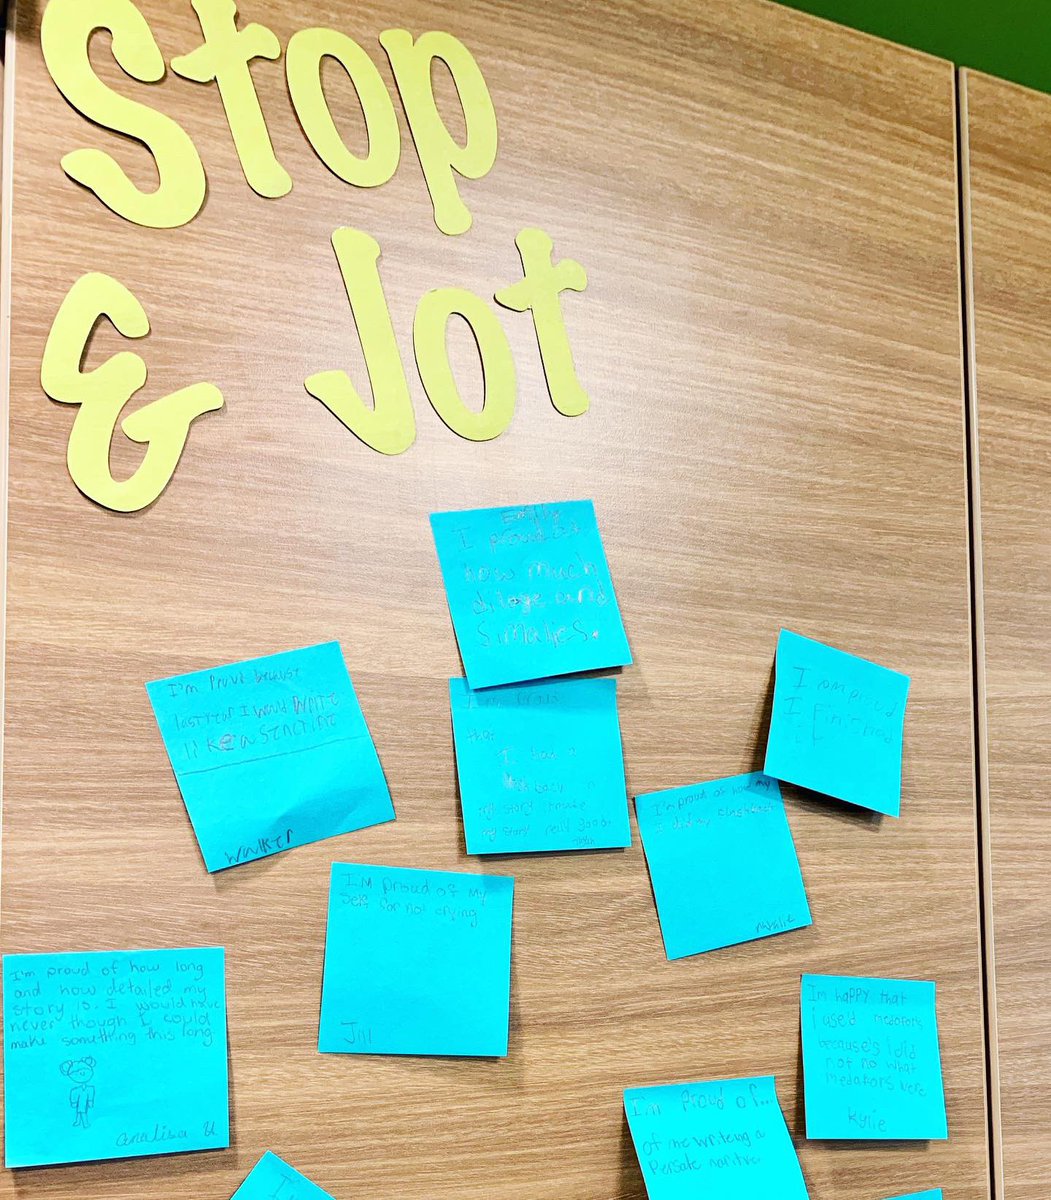 Stop
& Jot
I proud at
how much
diloge and
Similies.
I'm Proud because
last year I would WRITE
like
Walker
I am proud
that
I had a
back in
my story
my story good
I am proud
I
I'm proud of how my
I did my
natalie
I'M Proud of My
Self for not crying
Jill
I'm proud of how long
and how detailed my
story is. I would have
never though I could
make something this long
analisa U
Im happy that
i use'd medafors
because's i did
not no what
medafors were
Kylie
I'm Proud of...
of me writeng a
Persate naritve.